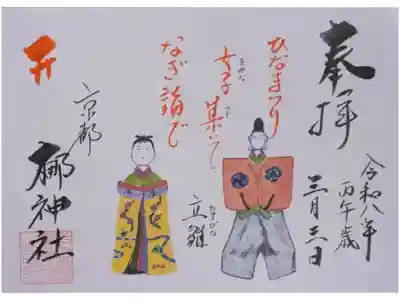 奉拝
令和八年
丙午歳
三月三日
ひなまつり
女子集いて
なぎ詣で
立雛
たちびな
京都
梛神社